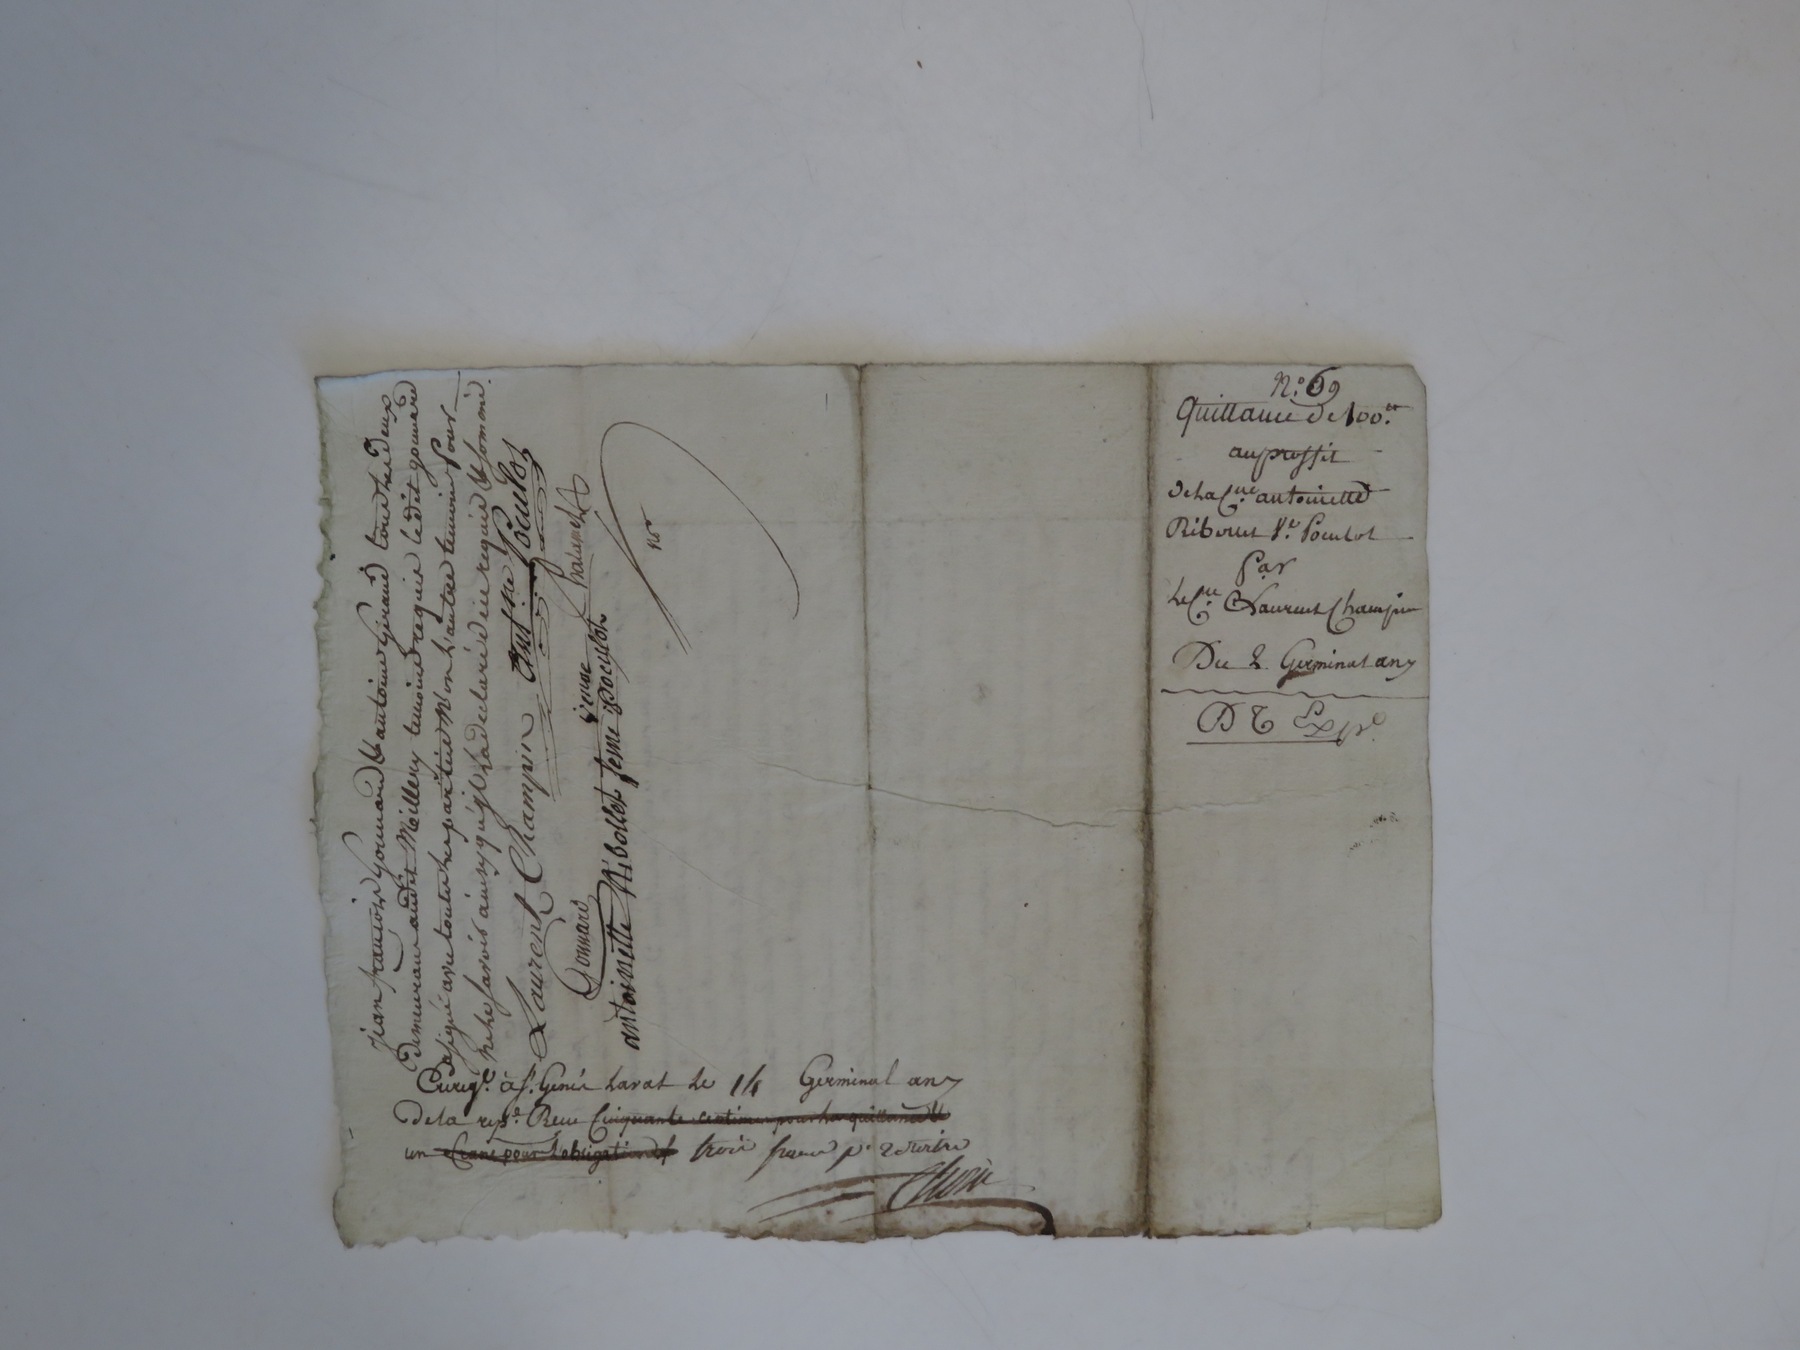 jean françois Gonnard & antoine Géraud tous les deux
demeurant audit Millery temoins requis ledit gonnard
a signé avec toutes les parties & non l'autre temoin pour
ne le savoir ainsy qu'il l'a déclaré de ce requis & sommé.
Laurent Champin antoine Poculot
Gonnard
antoinette Ribollet feme Poculot
nor
Enregé. à st. Genis Laval le 14 Germinal an 7
de la repe. Reçu Cinquante centimes pour la quittance &
un franc pour l'obligation trois francs pr.
N.° 69
Quittance de 100.tt
au proffit
de la Cne antoinette
Ribollet Ve. Poculot
Par
le Cne. Laurent Champin
Du 2 Germinal an 7
D T Exp.e